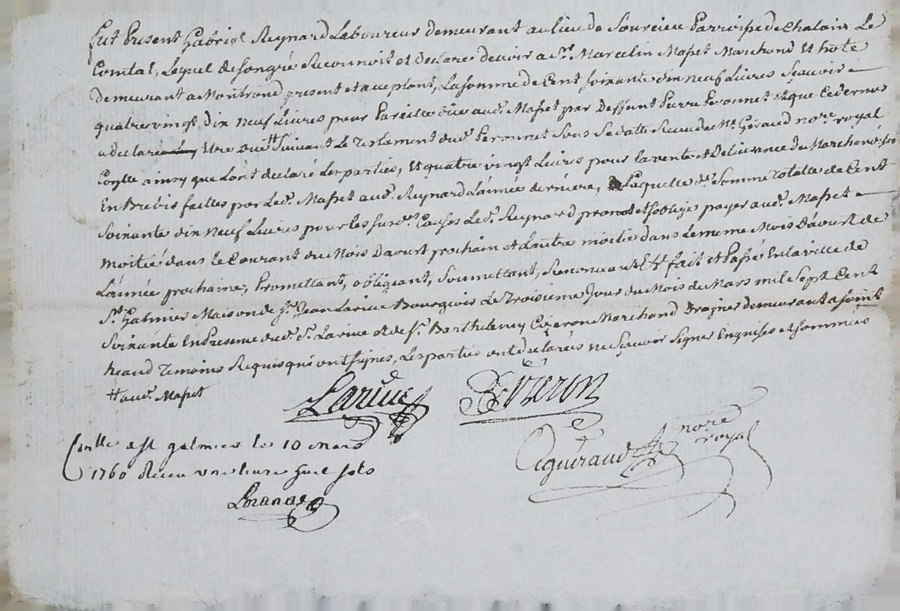 fut Present Gabriel Reynard Laboureur demeurant au lieu de Sourcieu Parroisse de Chalain Le
Comtal, Lequel de son gré Reconnoit et declare devoir a Sr. Marcelin Maset Marchand et hote
demeurant a Montrond present et acceptant, La somme de Cent soixante dix neuf Livres Scavoir
quatre vingt dix neuf Livres pour Pareille düe aud. Maset par Deffunt Pierre Peronnet
a declaré Etre düe tt Suivant Le Testament dud. Sans Sa datte Receu de Me Guiraud nore. royal
ainsy que L'ont declaré Les parties, Et quatre vingt Livres pour La vente et Delivrance de Marchandises
En Brebis faittes par Led. Maset aud. Reynard L'année derniere, Laquelle de. Somme Totalle de Cent
Soixante dix neuf Livres pour les susd. Causes Led. Reynard promet et s'oblige payer aud. Maset
moitié dans le Courant du Mois Daoust prochain et L'autre moitié dans Le meme Mois D'aoust de
L'année prochaine, Promettant, obligeant, Soumettant, Renonceant &c fait et Passé En la ville de
St. Galmier Maison de Sr. Jean Larive Bourgeois Le Troisieme Jour du Mois de Mars mil Sept Cent
Soixante En Presence dud. Sr. Larive et de Sr. Barthelemy Marchand demeurant a Saint
heaud Temoins Requis qui ont signés, Les parties ont declarés ne Scavoir Signer Enquises et sommées
tt aud. Maset
Larive
nore
royal
Guiraud
Conlle a St galmier le 10 mars
1760 Receu une livre huit sols